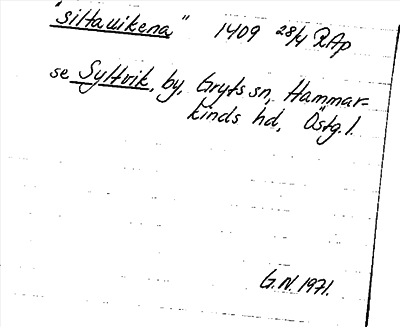 "siltauikena" 1409 28/4 RAp
se Syltvik, by, Gryts sn, Hammar=
kinds hd, Östg.l.
G.N. 1971.